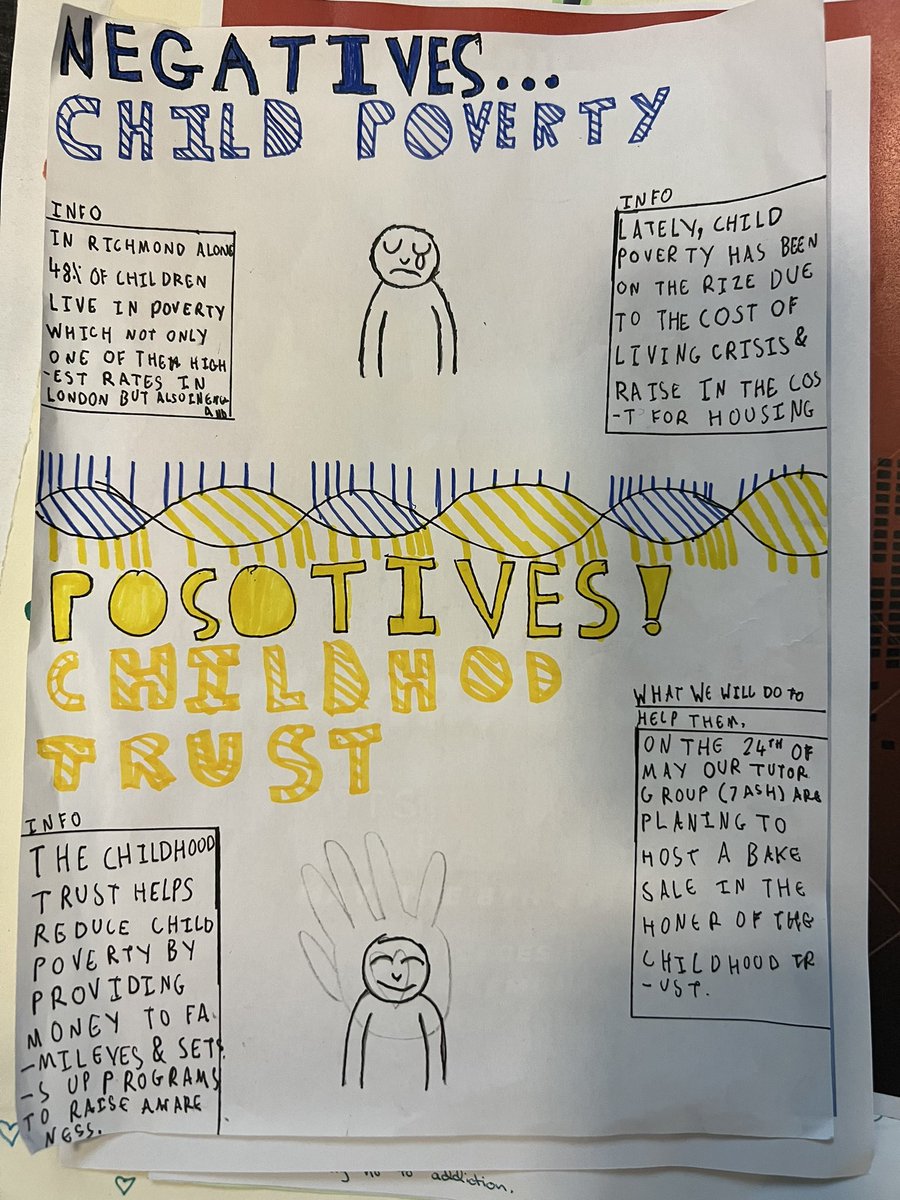 NEGATIVES...
CHILD POVERTY
INFO
IN RICHMOND ALONE
48% OF CHILDREN
LIVE IN POVERTY
WHICH NOT ONLY
ONE OF THEM HIGH
-EST RATES IN
LONDON BUT ALSO IN ENGL
AND
INFO
LATELY, CHILD
POVERTY HAS BEEN
ON THE RIZE DUE
TO THE COST OF
LIVING CRISIS &
RAISE IN THE COS
-T FOR HOUSING
POSOTIVES!
CHILDHOD
TRUST
INFO
THE CHILDHOOD
TRUST HELPS
REDUCE CHILD
POVERTY BY
PROVIDING
MONEY TO FA
-MILEYES & SETS
-S UP PROGRAMS
TO RAISE AWARE
NESS.
WHAT WE WILL DO TO
HELP THEM.
ON THE 24TH OF
MAY OUR TUTOR
GROUP (7ASH) ARE
PLANING TO
HOST A BAKE
SALE IN THE
HONER OF THE
CHILDHOOD TR
-UST.
no to addiction.